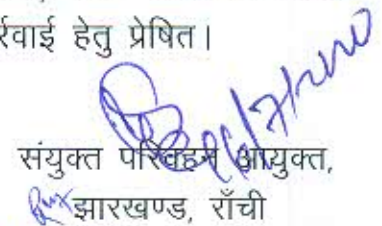 र्रवाई हेतु प्रेषित।
संयुक्त परिवहन आयुक्त,
झारखण्ड, राँची